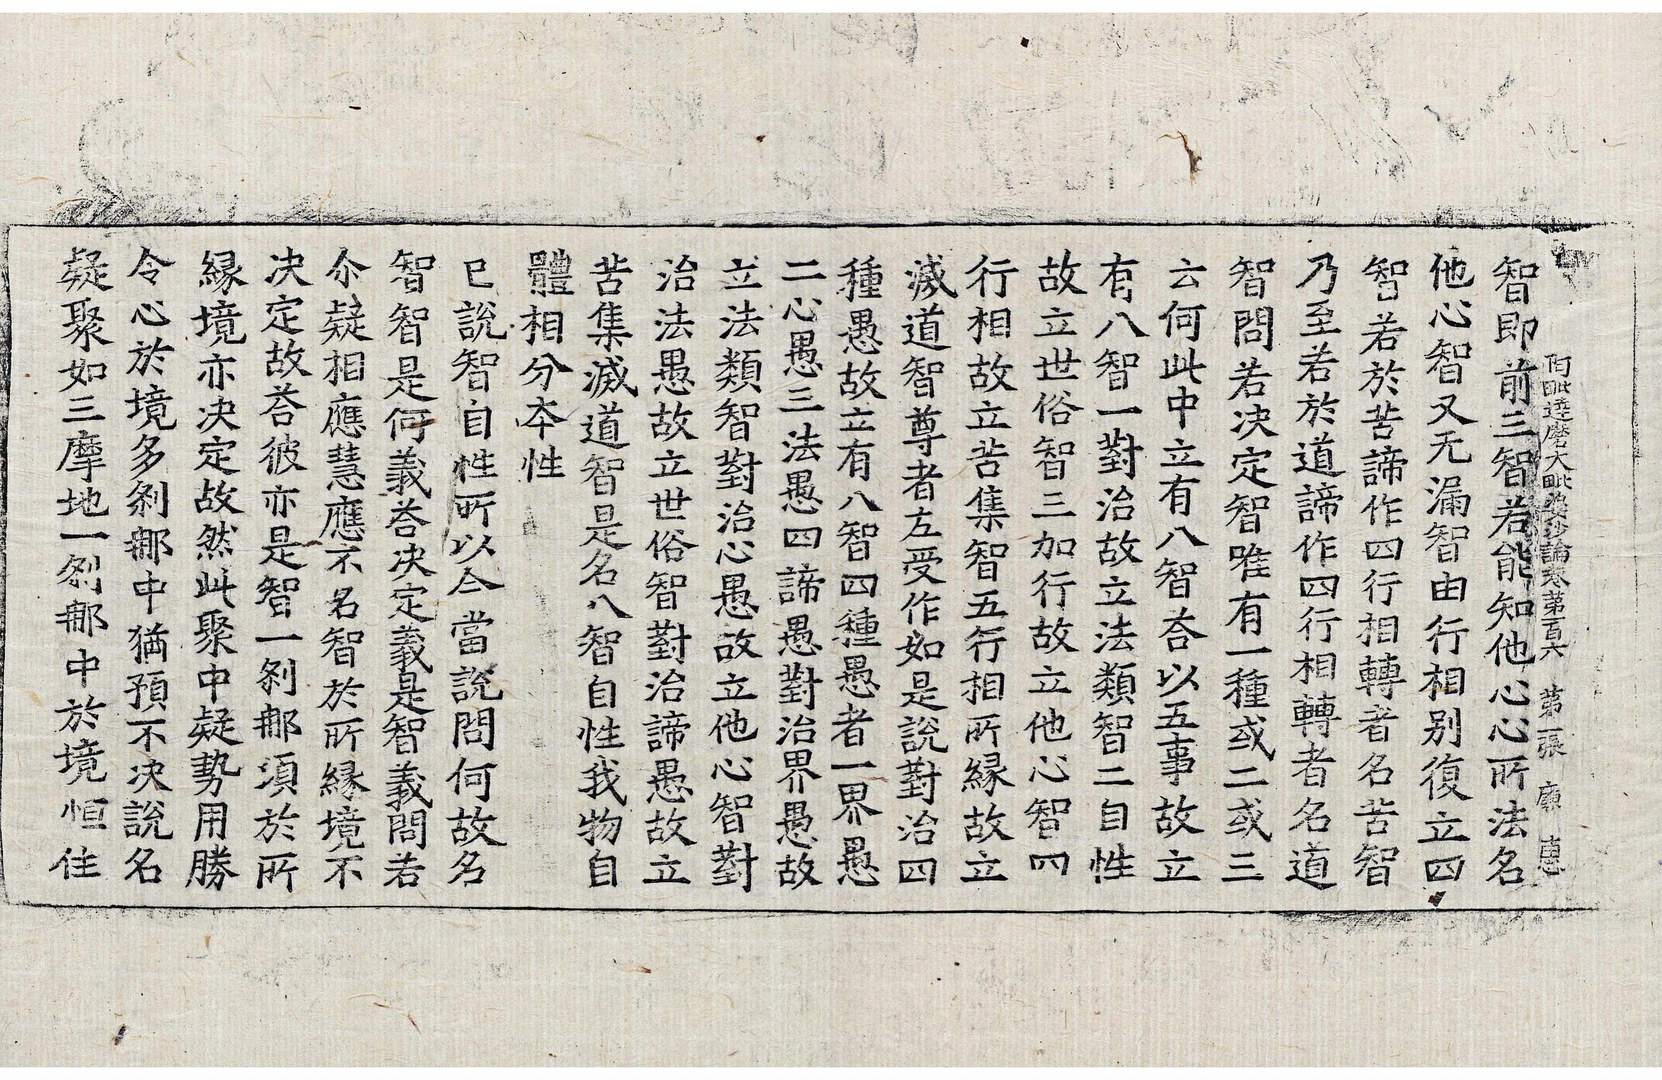 阿毗達磨大毗婆沙論卷第百六　第二張　廟　惠
智即前三智若能知他心心所法名
他心智又无漏智由行相別復立四
智若於苦諦作四行相轉者名苦智
乃至若於道諦作四行相轉者名道
智問若决定智唯有一種或二或三
云何此中立有八智荅以五事故立
有八智一對治故立法類智二自性
故立世俗智三加行故立他心智四
行相故立苦集智五行相所縁故立
滅道智尊者左受作如是說對治四
種愚故立有八智四種愚者一界愚
二心愚三法愚四諦愚對治界愚故
立法類智對治心愚故立他心智對
治法愚故立世俗智對治諦愚故立
苦集滅道智是名八智自性我物自
體相分本性
已說智自性所以今當說問何故名
智智是何義荅决定義是智義問若
尒疑相應慧應不名智於所縁境不
决定故荅彼亦是智一刹那須於所
縁境亦决定故然此聚中疑勢用勝
令心於境多刹那中猶預不决說名
疑聚如三摩地一刹那中於境恒住